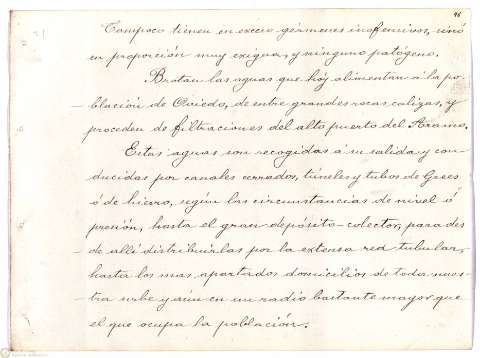 96
Tampoco tienen en exceso gérmenes inofensivos, sinó
en proporción muy exigua, y ninguno patógeno.
Brotan las aguas que hoy alimentan á la po-
blación de Oviedo, de entre grandes rocas calizas, y
proceden de filtraciones del alto puerto del Aramo.
Estas aguas son recogidas á su salida y con-
ducidas por canales cerrados, túneles y tubos de Grees
ó de hierro, según las circunstancias de nivel ó
presión, hasta el gran depósito-colector, para des-
de allí distribuirlas por la extensa red tubular,
hasta los mas apartados domicilios de toda nues-
tra urbe y aún en un radio bastante mayor que
el que ocupa la población.